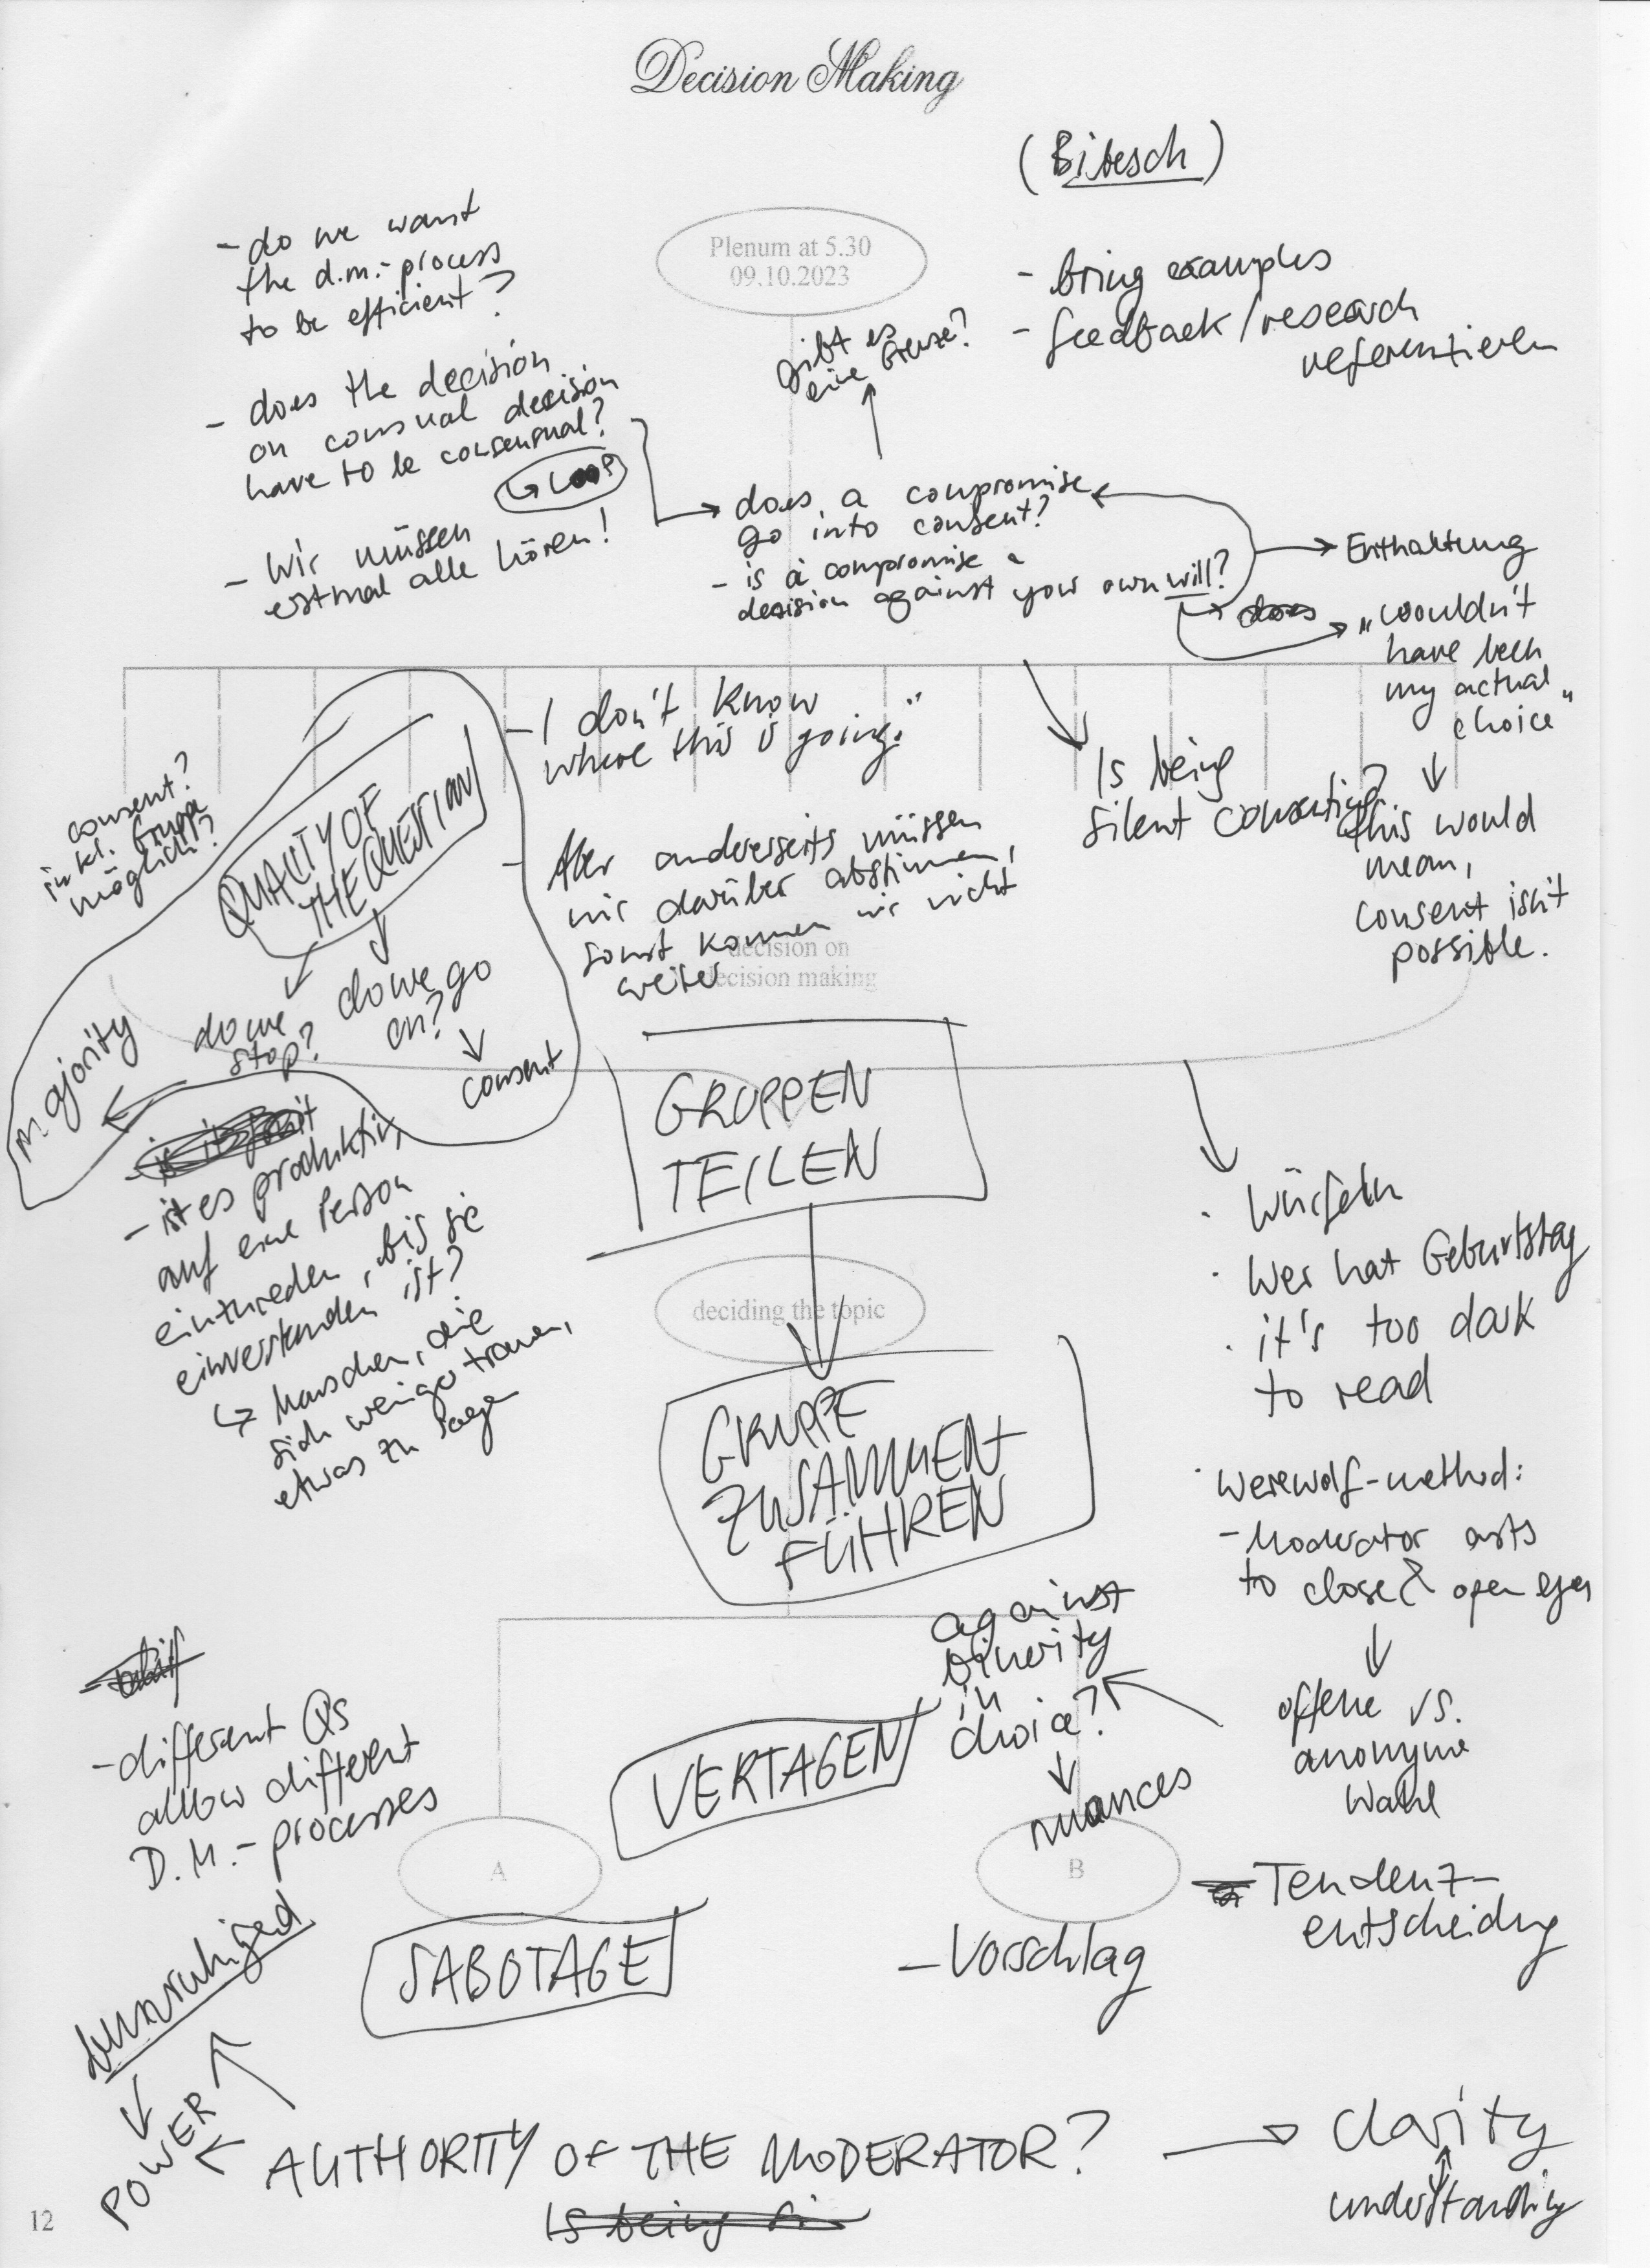 Decision Making
(Bitesch)
- do we want
the d.m.-process
to be efficient?
Plenum at 5.30
09.10.2023
- bring examples
- feedback/research
referentieren
gibt es
eine Grenze?
- does the decision
on consual decision
have to be consensual?
↳ LOOP
- Wir müssen
erstmal alle hören!
does a compromise
go into consent?
- is a compromise a
decision against your own will?
→ Enthaltung
does
„wouldn't
have been
my actual
choice"
↓
this would
mean,
consent isn't
possible.
- I don't know
where this is going."
Is being
silent consenting?
consent?
in kl. Gruppe
möglich?
QUALITY OF
THE QUESTION
- Aber andererseits müssen
wir darüber abstimmen,
sonst kommen wir nicht
weiter
decision on
decision making
do we
stop?
do we go
on?
↓
consent
majority
GRUPPEN
TEILEN
- ist es produktiv,
auf eine Person
einzureden, bis sie
einverstanden ist?
↳ Menschen, die
sich weniger trauen,
etwas zu sagen
· Würfeln
· Wer hat Geburtstag
· it's too dark
to read
deciding the topic
GRUPPE
ZUSAMMEN
FÜHREN
· Werewolf-method:
- Moderator asks
to close & open eyes
↓
offene vs.
anonyme
Wahl
against
binerity
in
choice?
↓
nuances
- different Qs
allow different
D.M.-processes
VERTAGEN
A
B
Tendenz-
entscheidung
SABOTAGE
- Vorschlag
POWER
AUTHORITY OF THE MODERATOR? → Clarity
understanding
Is being
12